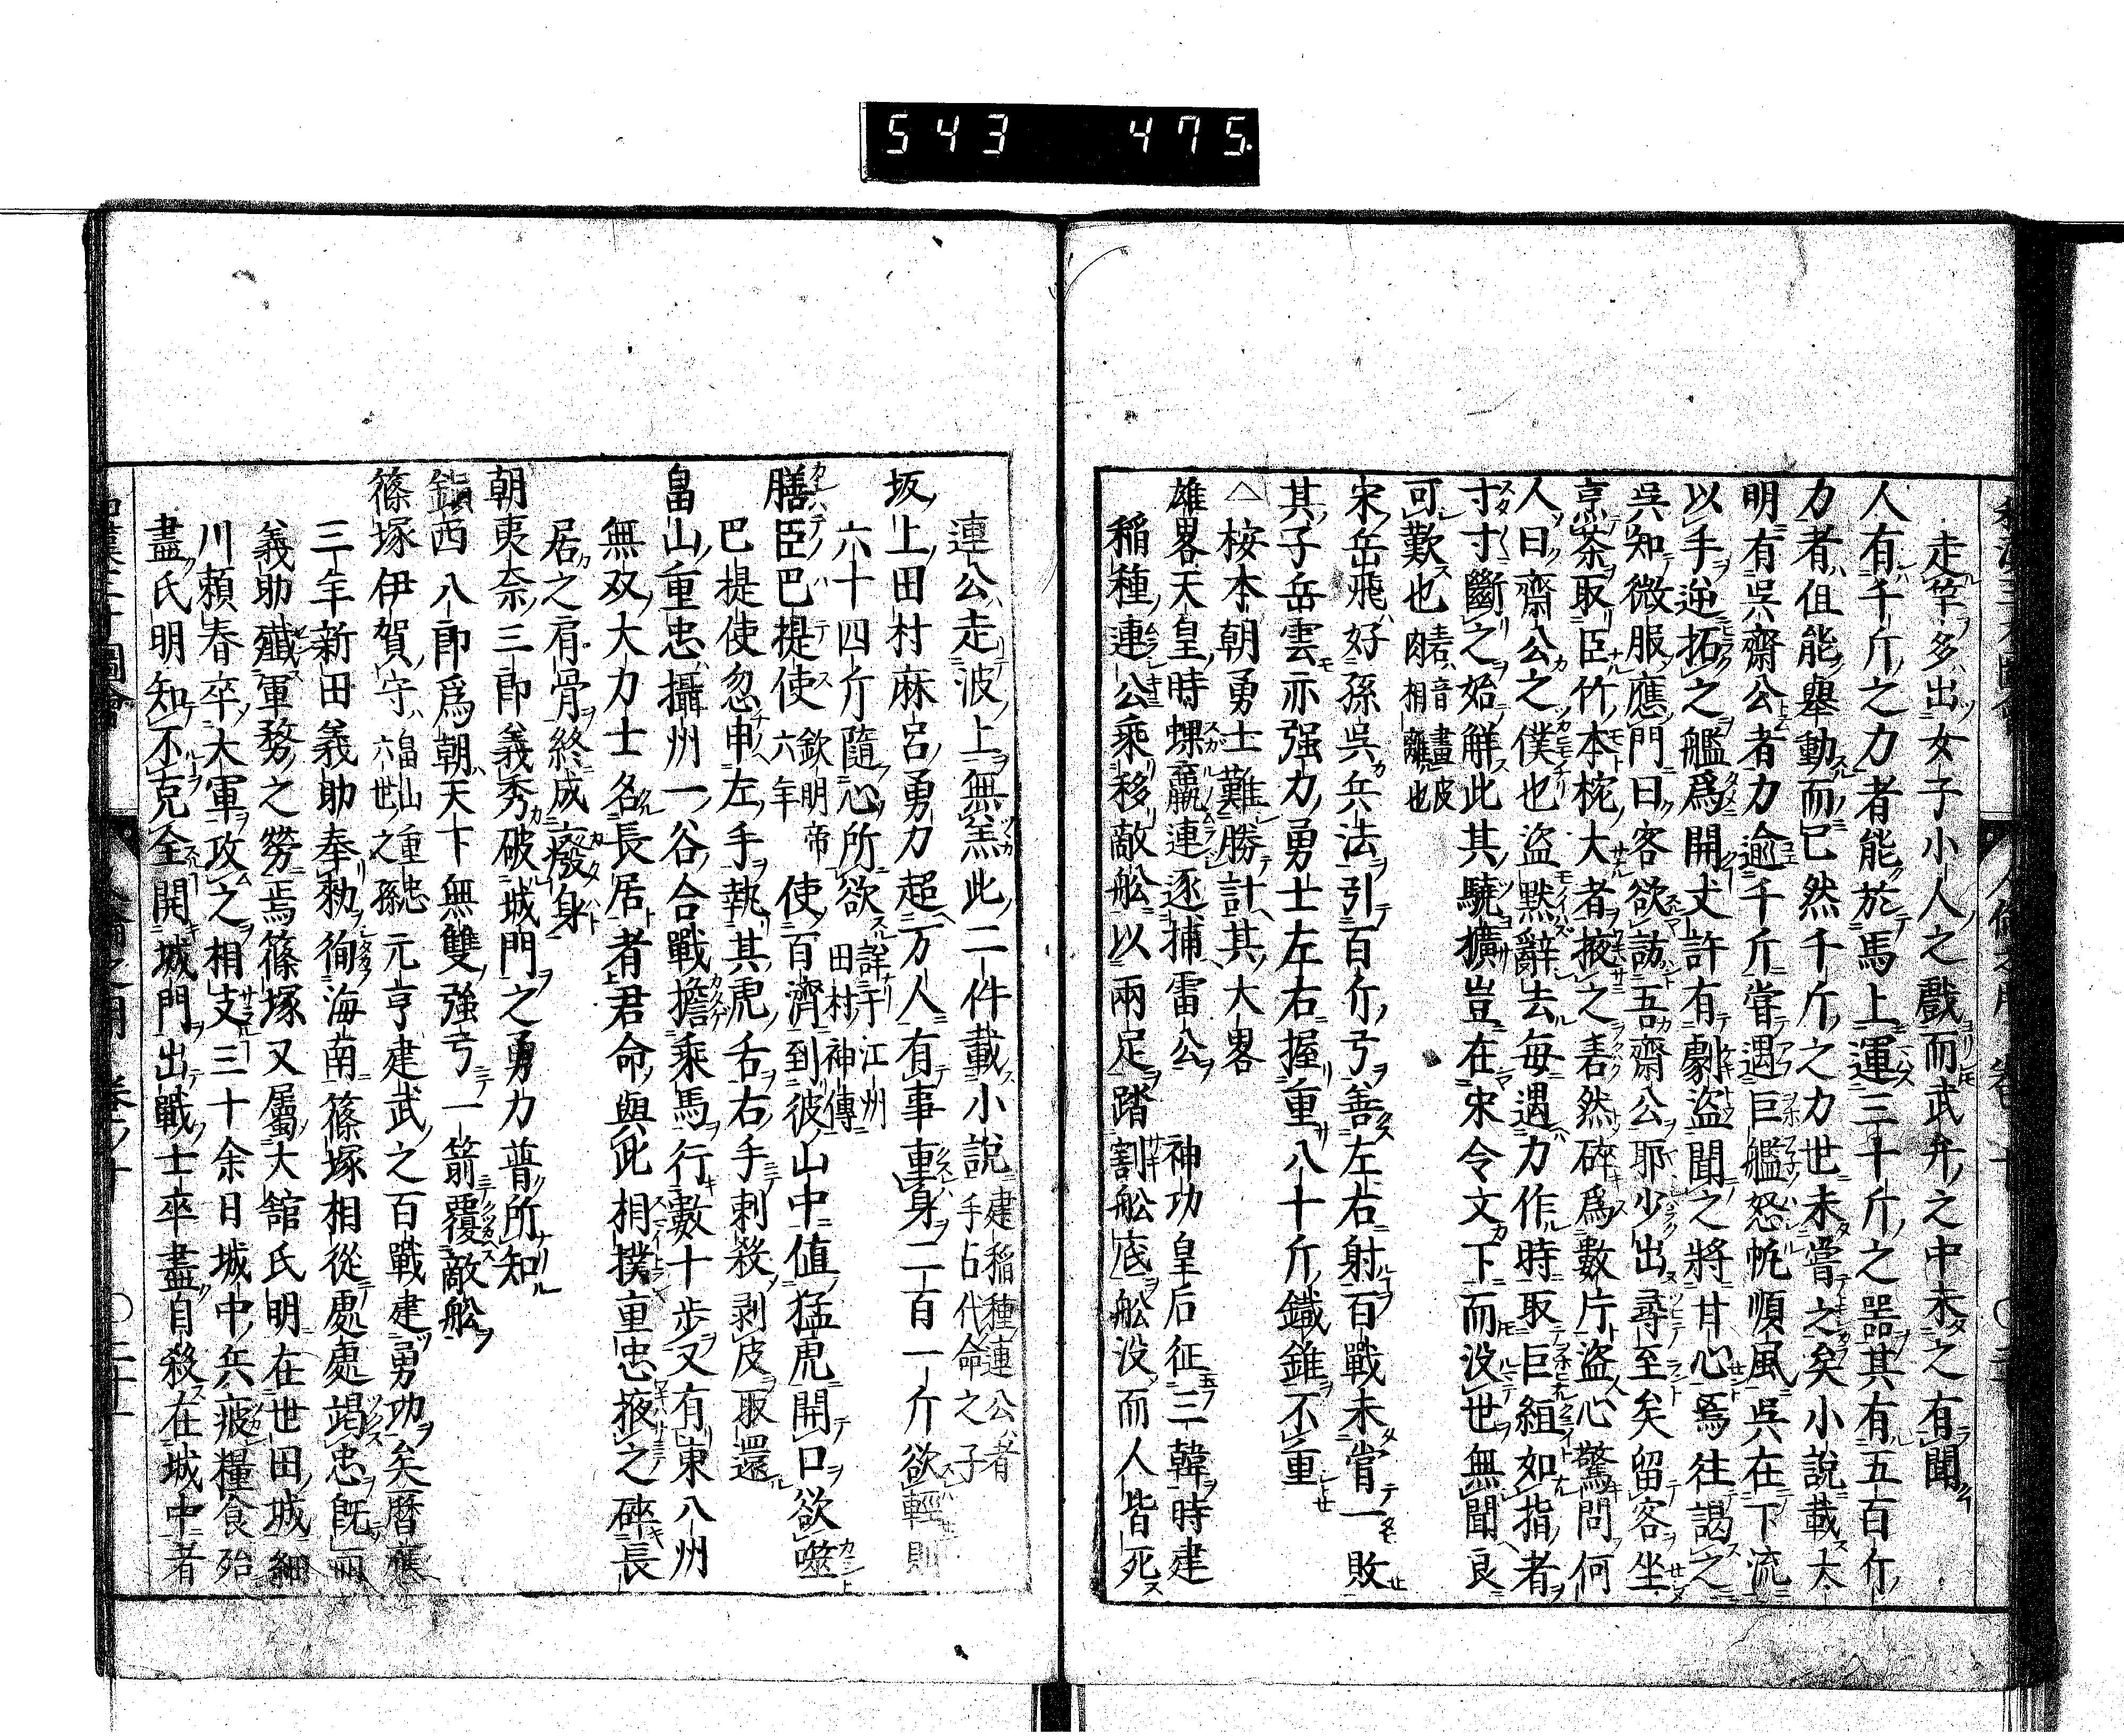 543 475.
走竿多出女子小人之戲而武弁之中未之有聞
人有千斤之力者能於馬上運三十斤之器其有五百斤
力者但能舉動而已然千斤之力世未嘗之矣小說載大
明有吳齋公者力逾千斤嘗遇巨艦怒帆順風吳在下流
以手逆拓之艦爲開丈許有劇盜聞之將甘心焉往謁之
吳知微服應門曰客欲訪吾齋公耶少出尋至矣留客坐
烹茶取臣竹本椀大者掖之砉然碎爲數片盜心驚問何
人曰齋公之僕也盜默辭去每遇力作時取巨組如指者
寸寸斷之始解此其驍獷豈在宋令文下而没世無聞良
可歎也砉音畫皮肉相離也
宋岳飛好孫吳兵法引百斤弓善左右射百戰未嘗一敗
其子岳雲亦强力勇士左右握重八十斤鐵錐不重
△桉本朝勇士難勝計其大畧
雄畧天皇時蜾蠃連逐捕雷公 神功皇后征三韓時建
稲種連公乘移敵舩以兩足踏割舩底舩没而人皆死
連公走波上無恙此二件載小說建稲種連公者手占代命之子
坂上田村麻呂勇力超万人有事重身二百一斤欲輕則
六十四斤隨心所欲詳于江州田村神傳
膳臣巴提使欽明帝六年使百濟到彼山中值猛虎開口欲噬
巴提使忽申左手執其虎舌右手刺殺剥皮取還
畠山重忠攝州一谷合戰擔乘馬行數十步又有東八州
無双大力士名長居者君命與此相撲重忠掖之碎長
居之肩骨終成癈身
朝夷奈三郎義秀破城門之勇力普所知
鎮西八郎爲朝天下無雙強弓一箭覆敵舩
篠塚伊賀守畠山重忠六世之孫元亨建武之百戰建勇功矣曆應
三年新田義助奉勅徇海南篠塚相從處處竭忠既而
義助殲軍務之勞焉篠塚又屬大舘氏明在世田城細
川頼春卒大軍攻之相支三十余日城中兵疲糧食殆
盡氏明知不克全開城門出戰士卒盡自殺在城中者